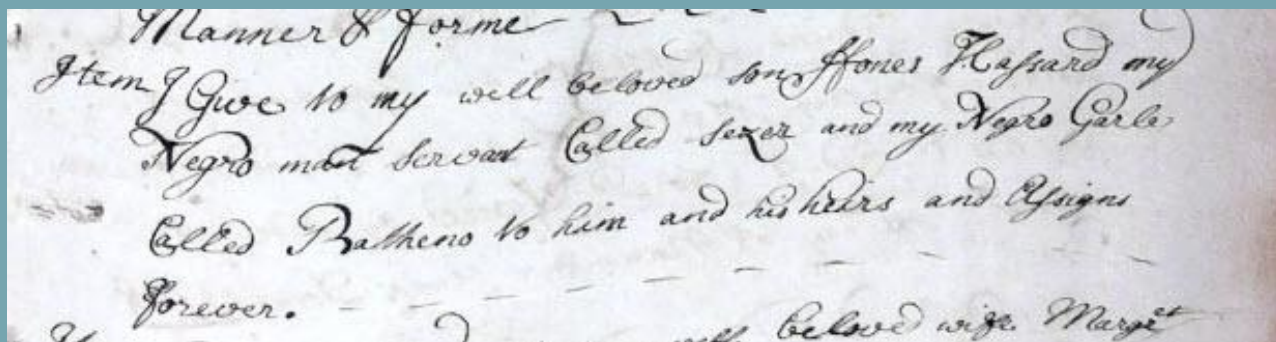 Manner & forme
Item J Give to my well beloved son ffones Hassard my
Negro man servant Called Sezer and my Negro Garle
Called Ratheno to him and his heirs and Assigns
forever.
well beloved wife Marg<sup>et</sup>